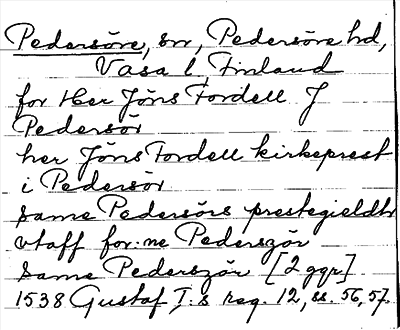 Pedersöre, sn, Pedersöre hd,
Vasa l, Finland
for Her Jöns Fordell J
Pedersör
her Jöns Fordell kirkeprest
i Pedersör
Same Pedersörs prestegieldtr
vtaff for:ne Pederször
Same Pederször [2 ggr]
1538 Gustaf I:s reg. 12, ss. 56, 57.